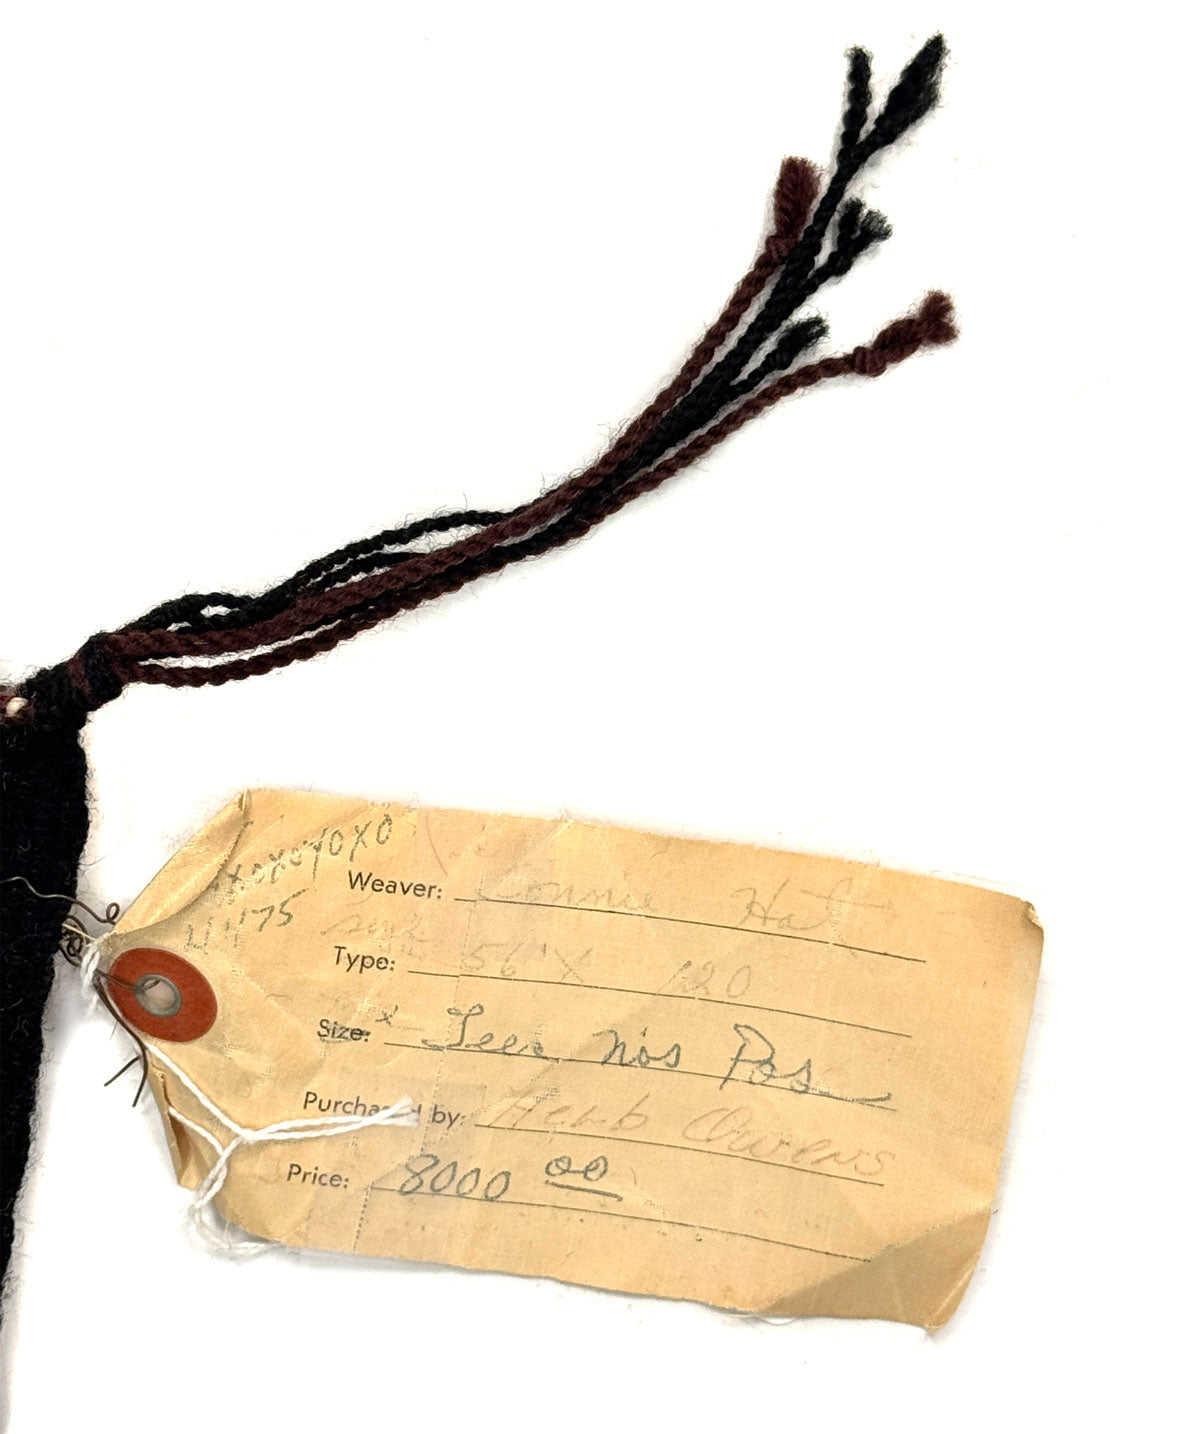 XOXOYOXO
4475
Weaver: Connie Hat
Type: 56" X 120
Size: x Teec nos Pos
Purchased by: Herb Owens
Price: 8000 00